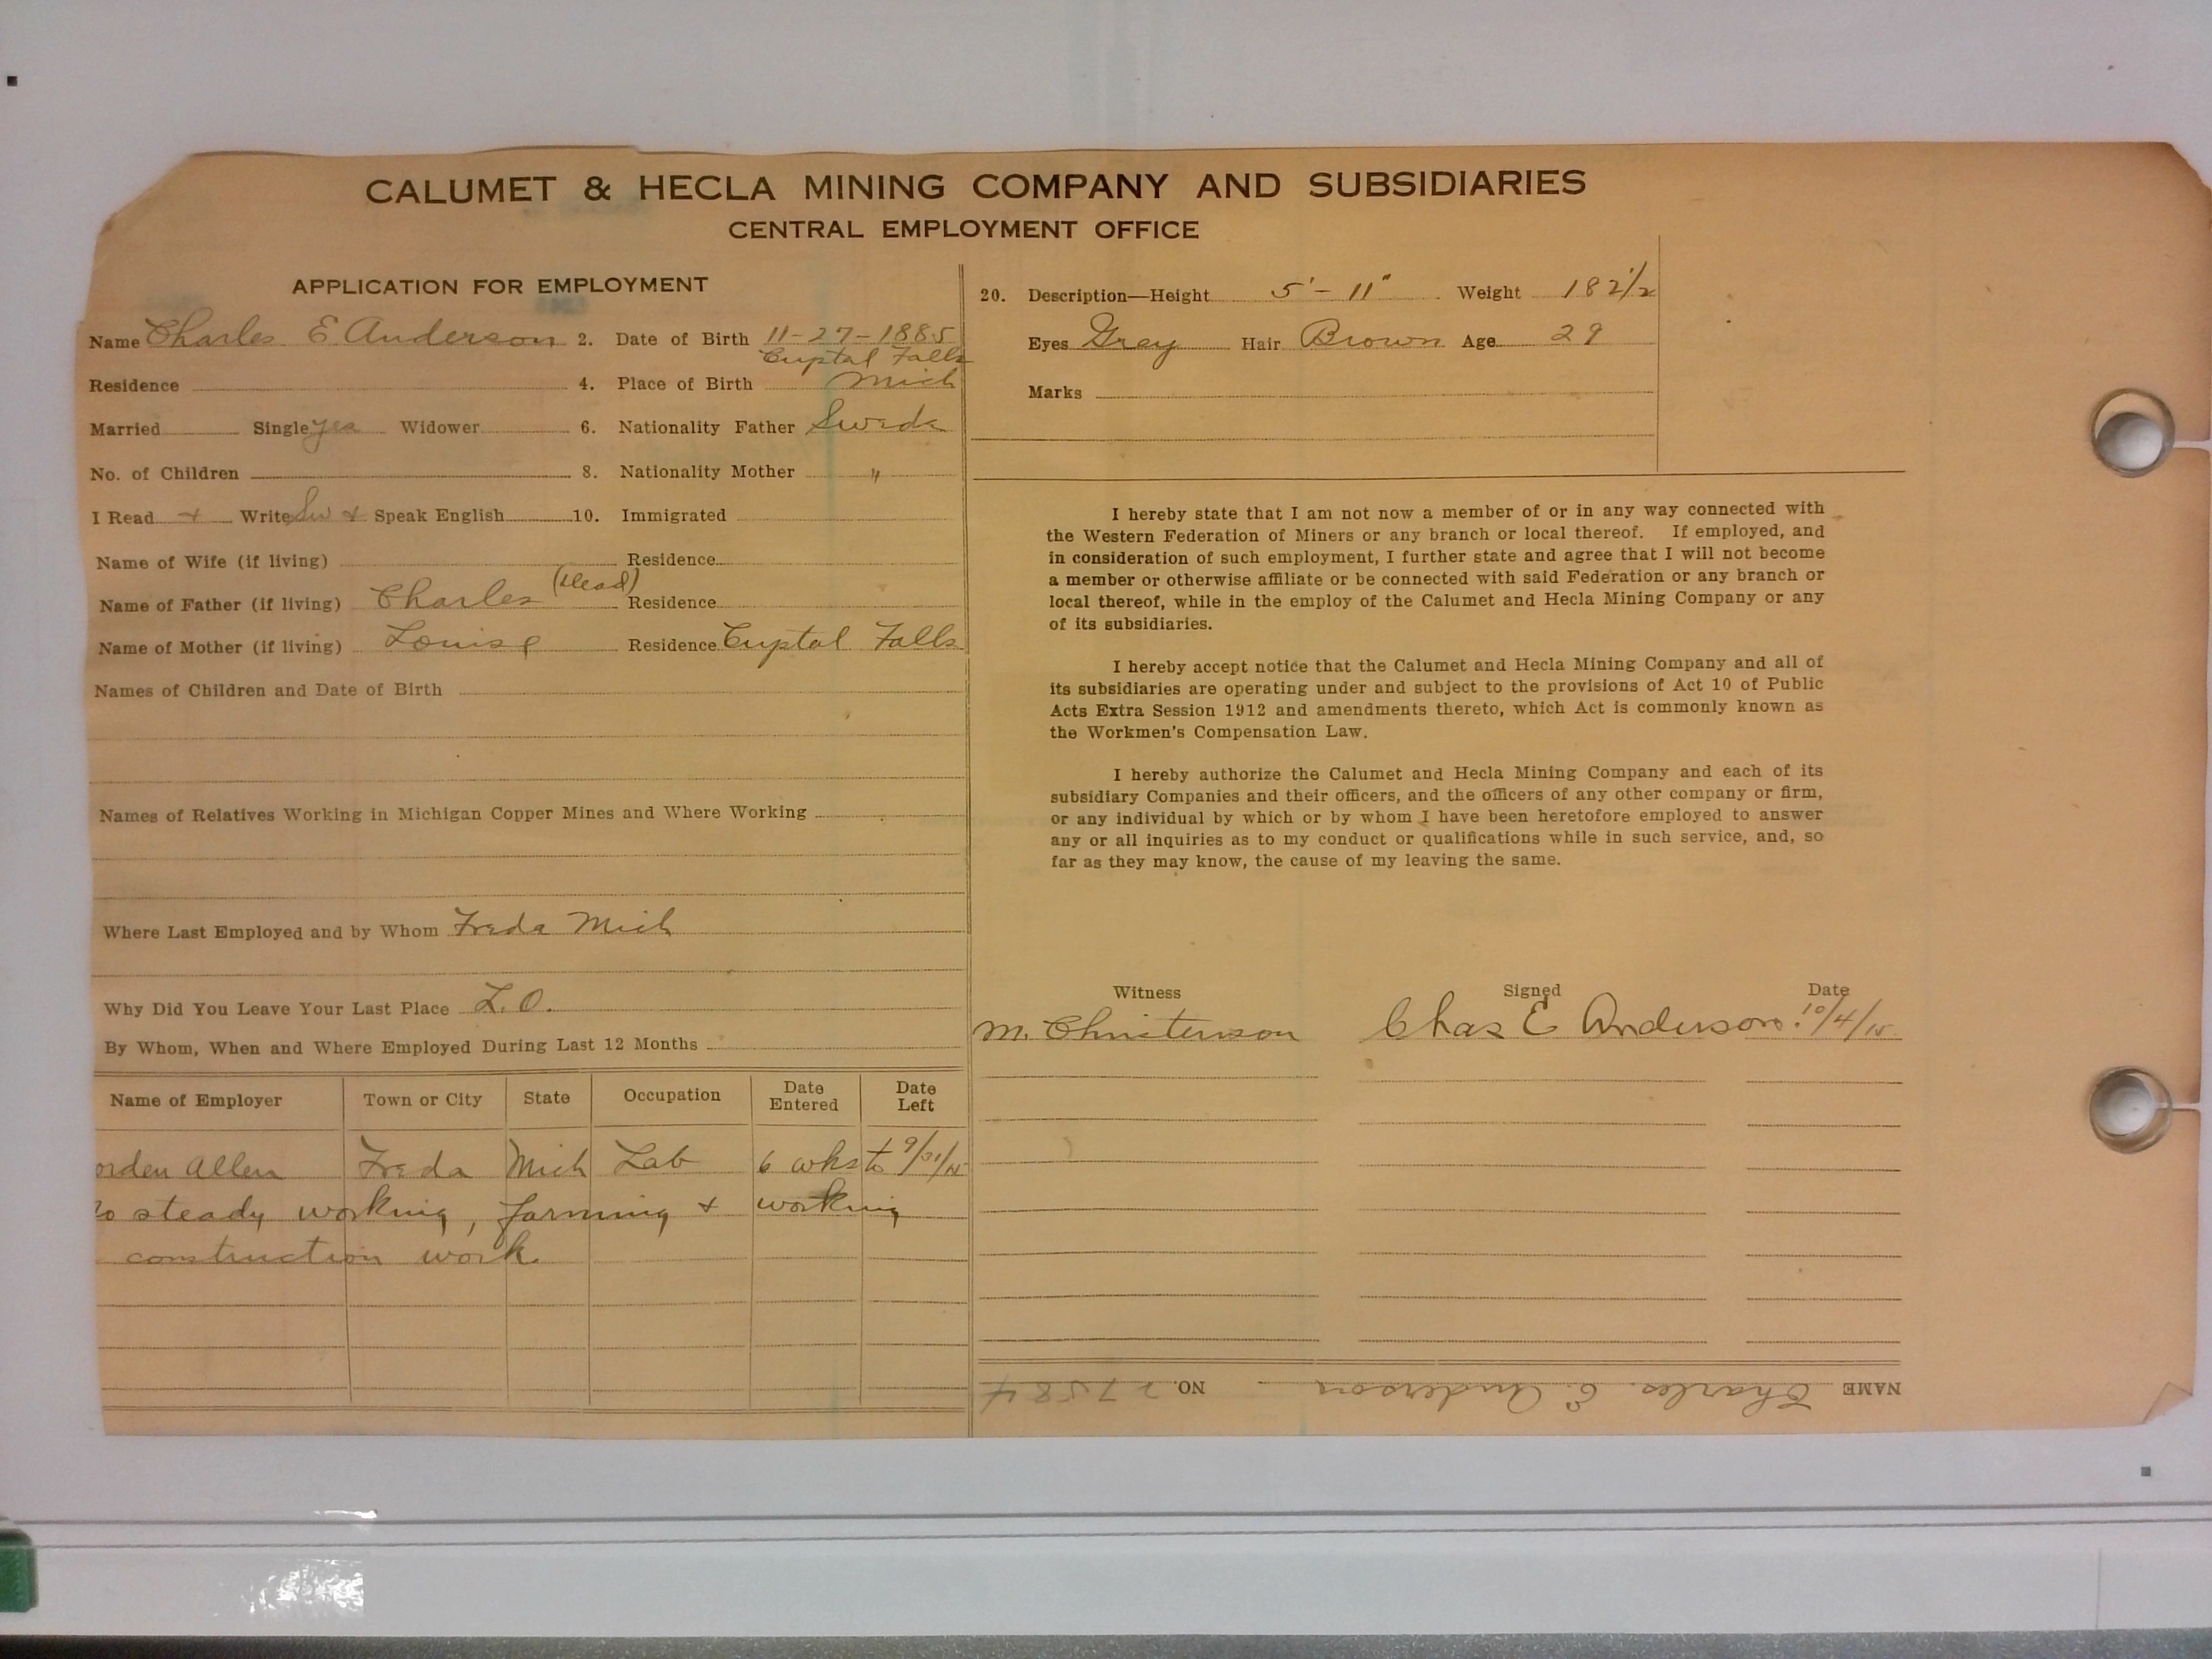 CALUMET & HECLA MINING COMPANY AND SUBSIDIARIES
CENTRAL EMPLOYMENT OFFICE
APPLICATION FOR EMPLOYMENT
Name Charles E Anderson 2. Date of Birth 11-27-1885
Crystal Falls
Residence 4. Place of Birth Mich
Married Single yes Widower 6. Nationality Father Swede
No. of Children 8. Nationality Mother "
I Read + Write Sw + Speak English 10. Immigrated
Name of Wife (if living) Residence
Name of Father (if living) Charles (Dead) Residence
Name of Mother (if living) Louise Residence Crystal Falls
Names of Children and Date of Birth
Names of Relatives Working in Michigan Copper Mines and Where Working
Where Last Employed and by Whom Freda Mich
Why Did You Leave Your Last Place L.O.
By Whom, When and Where Employed During Last 12 Months
Name of Employer Town or City State Occupation Date Entered Date Left
orden Allen Freda Mich Lab 6 wks to 9/31/15
No steady working, farming + working
construction work.
20. Description—Height 5'-11" Weight 182 1/2
Eyes Grey Hair Brown Age 29
Marks
I hereby state that I am not now a member of or in any way connected with
the Western Federation of Miners or any branch or local thereof. If employed, and
in consideration of such employment, I further state and agree that I will not become
a member or otherwise affiliate or be connected with said Federation or any branch or
local thereof, while in the employ of the Calumet and Hecla Mining Company or any
of its subsidiaries.
I hereby accept notice that the Calumet and Hecla Mining Company and all of
its subsidiaries are operating under and subject to the provisions of Act 10 of Public
Acts Extra Session 1912 and amendments thereto, which Act is commonly known as
the Workmen's Compensation Law.
I hereby authorize the Calumet and Hecla Mining Company and each of its
subsidiary Companies and their officers, and the officers of any other company or firm,
or any individual by which or by whom I have been heretofore employed to answer
any or all inquiries as to my conduct or qualifications while in such service, and, so
far as they may know, the cause of my leaving the same.
Witness Signed Date
M. Christenson Chas E Anderson. 10/4/15
NAME Charles. E. Anderson NO. 27584